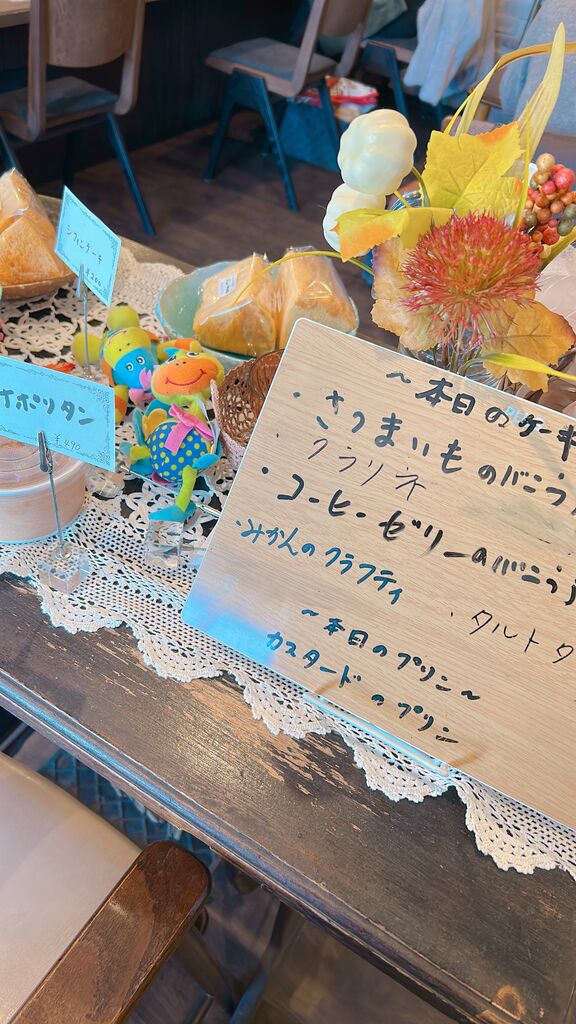 シフォンケーキ
¥200
ナポリタン
¥490
〜本日のケーキ
・さつまいものババロア
クラリネ
・コーヒーゼリーのババロア
・みかんのクラフティ
・タルトタ
〜本日のプリン〜
カスタードのプリン